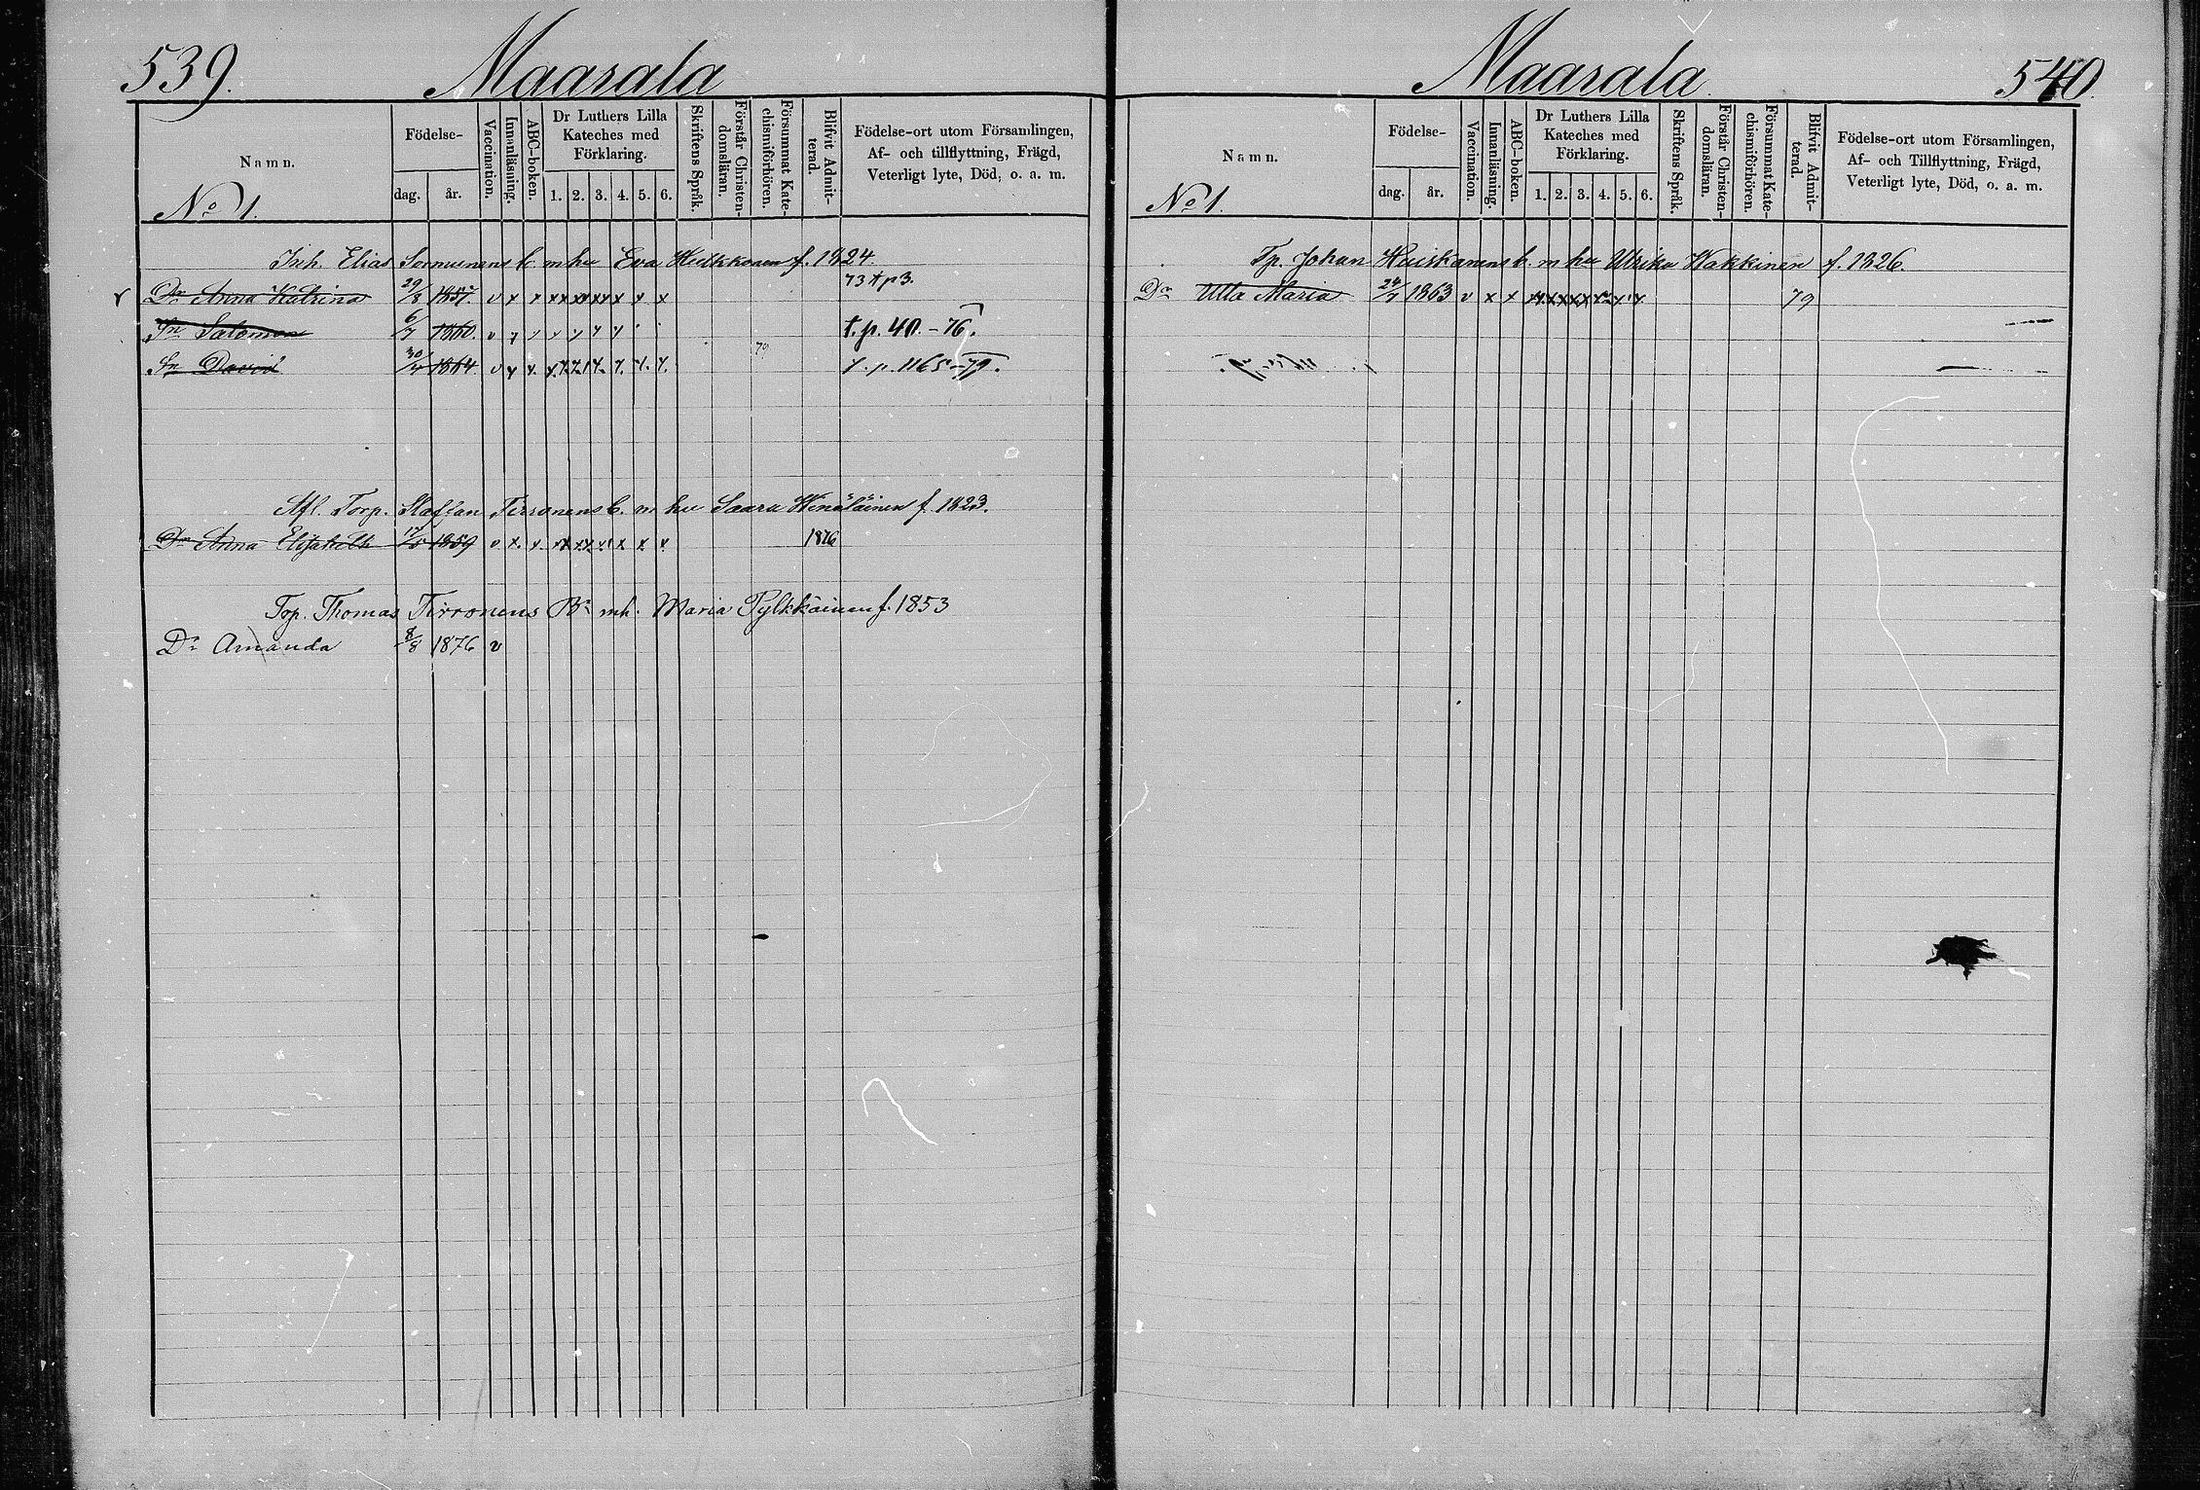 539.
Maarala
Namn.
Födelse-
dag.
år.
Vaccination.
Innanläsning.
ABC-boken.
Dr Luthers Lilla
Kateches med
Förklaring.
1. 2. 3. 4. 5. 6.
Skriftens Språk.
Förstår Christen-
domsläran.
Försummat Kate-
chismiförhören.
Blifvit Admit-
terad.
Födelse-ort utom Församlingen,
Af- och tillflyttning, Frägd,
Veterligt lyte, Död, o. a. m.
No 1.
Inh. Elias Sormunens b. m hu Eva f. 1824.
Dr Anna Katrina 29/8 1857 v x x x x x x x x x 73 t p 3.
Sn Salomon 6/7 1860. v t. p. 40. - 76.
Sn David 30/4 1864 v 79 t. p. 1165-79.
Afl. Torp. Staffan Tirronens b. m hu Saara Wenäläinen f. 1823.
Dr Anna Elisabeth 1859 v x x x x x x x x x 1876
Top. Thomas Tirronens Br mh. Maria Pylkkäinen f. 1853
Dr Amanda 8/8 1876 v
Maarala.
540.
Namn.
Födelse-
dag.
år.
Vaccination.
Innanläsning.
ABC-boken.
Dr Luthers Lilla
Kateches med
Förklaring.
1. 2. 3. 4. 5. 6.
Skriftens Språk.
Förstår Christen-
domsläran.
Försummat Kate-
chismiförhören.
Blifvit Admit-
terad.
Födelse-ort utom Församlingen,
Af- och Tillflyttning, Frägd,
Veterligt lyte, Död, o. a. m.
No 1.
Tp. Johan Huiskonens b. m hu Ulrika Hakkinen f. 1826.
Dr Ulla Maria 24/7 1863 v x x x x x x x x x 79